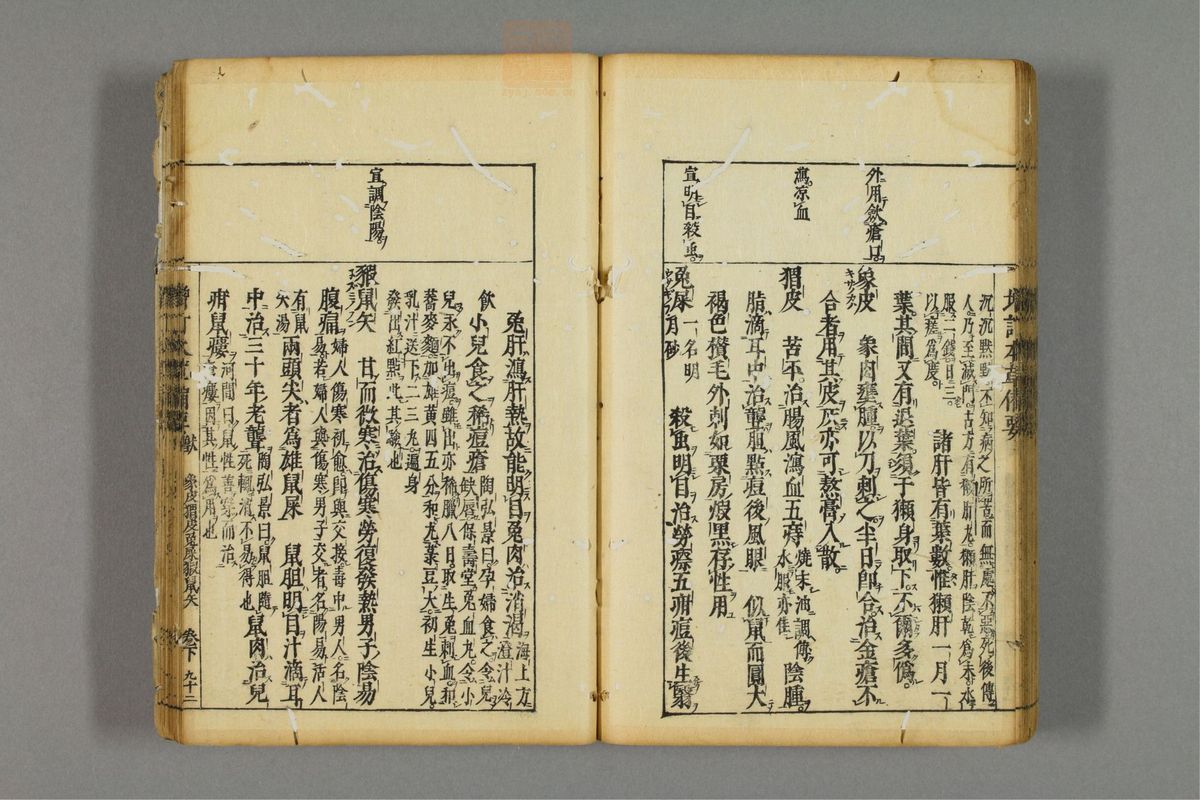 增訂本草備要
外用斂瘡口
瀉涼血
宣明目殺虫
沉沉默默不知病之所苦而無處不惡死後傳
人乃至滅門古方有獺肝丸獺肝陰乾為末水
服二錢日三
以瘥為度
諸肝皆有葉數惟獺肝一月一
葉其間又有退葉須于獺身取下不爾多偽
象皮 象肉壅腫以刀刺之半日即合治金瘡不
合者用其皮灰亦可熬膏入散
猬皮 苦平治腸風瀉血五痔燒末油調傅
水服亦佳
陰腫
脂滴耳中治聾胆點痘後風眼 似鼠而圓大
褐色攢毛外刺如栗房煅黑存性用
兔屎一名明
月砂
殺虫明目治勞瘵五疳痘後生翳
宣調陰陽
兔肝瀉肝熱故能明目兔肉治消渴海上方
澄汁冷
飲
小兒食之稀痘瘡陶弘景曰孕婦食之令兒
缺唇保壽堂兔血丸令小
兒永不出痘雖出亦稀臘八日取生兔刺血和
蕎麥麵加雄黃四五分和丸菉豆大初生小兒
乳汁送下二三丸遍身
發出紅點此其驗也
豭鼠矢 甘而微寒治傷寒勞復發熱男子陰易
腹痛婦人傷寒初愈即與交接毒中男人名陰
易若婦人與傷寒男子交者名陽易活人
有鼠
矢湯
兩頭尖者為雄鼠屎 鼠胆明目汁滴耳
中治三十年老聾陶弘景曰鼠胆隨
死輒消不易得也
鼠肉治兒
疳鼠瘻河間曰鼠性善穿而治
瘡瘻因其性為用也
獸 象皮猬皮兔屎豭鼠矢
卷下 九十二